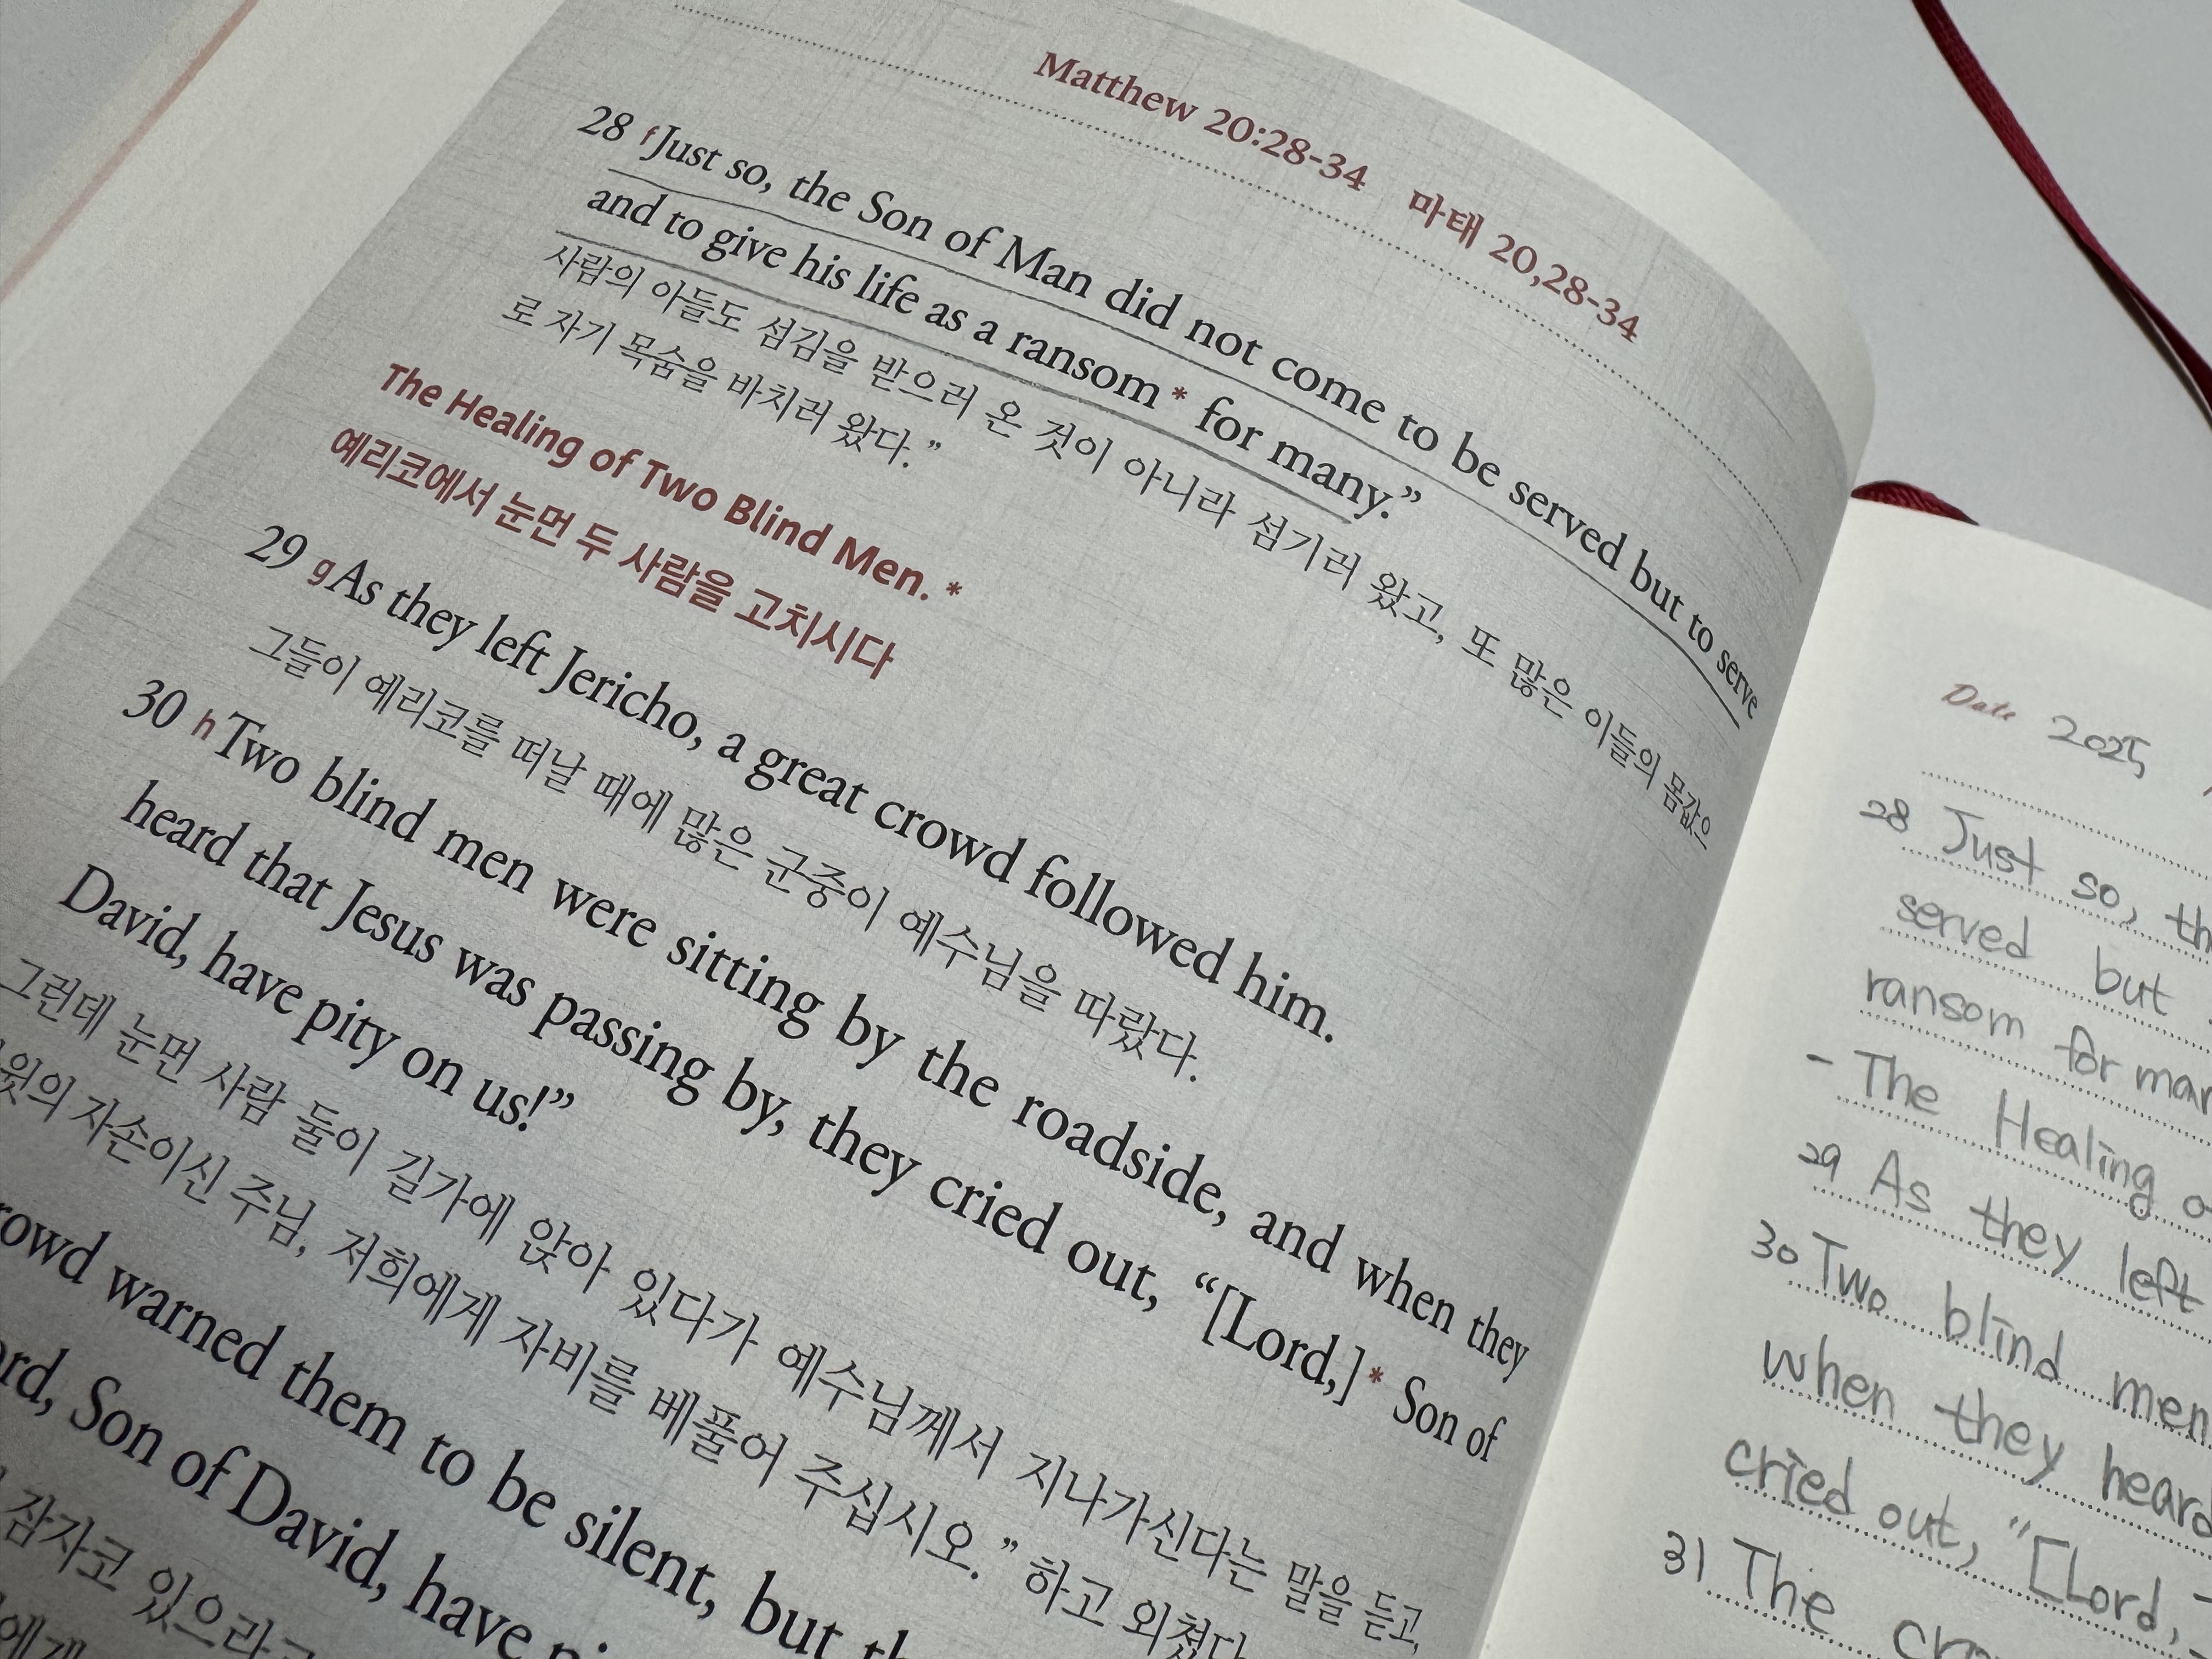 Matthew 20:28-34 마태 20,28-34
28 fJust so, the Son of Man did not come to be served but to serve
and to give his life as a ransom* for many.”
사람의 아들도 섬김을 받으러 온 것이 아니라 섬기러 왔고, 또 많은 이들의 몸값으
로 자기 목숨을 바치러 왔다.”
The Healing of Two Blind Men.*
예리코에서 눈먼 두 사람을 고치시다
29 gAs they left Jericho, a great crowd followed him.
그들이 예리코를 떠날 때에 많은 군중이 예수님을 따랐다.
30 hTwo blind men were sitting by the roadside, and when they
heard that Jesus was passing by, they cried out, “[Lord,]* Son of
David, have pity on us!”
그런데 눈먼 사람 둘이 길가에 앉아 있다가 예수님께서 지나가신다는 말을 듣고,
윗의 자손이신 주님, 저희에게 자비를 베풀어 주십시오.” 하고 외쳤다
owd warned them to be silent, but th
rd, Son of David, have pi
잠자코 있으라고
에게
Date 2025
28 Just so, th
served but
ransom for man
- The Healing o
29 As they left
30 Two blind men
when they heard
cried out, “[Lord,]
31 The cro